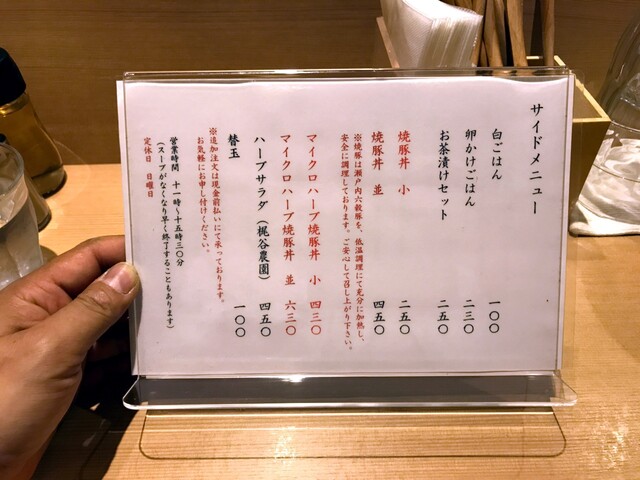 サイドメニュー
白ごはん 一〇〇
卵かけごはん 二三〇
お茶漬けセット 二五〇
焼豚丼 小 二五〇
焼豚丼 並 四五〇
※焼豚は瀬戸内六穀豚を、低温調理にて充分に加熱し、
安全に調理しております。ご安心して召し上がり下さい。
マイクロハーブ焼豚丼 小 四三〇
マイクロハーブ焼豚丼 並 六三〇
ハーブサラダ(梶谷農園) 四五〇
替玉 一〇〇
※追加注文は現金前払いにて承っております。
お気軽にお申し付けください。
営業時間 十一時〜十五時三〇分
(スープがなくなり早く終了することもあります)
定休日 日曜日